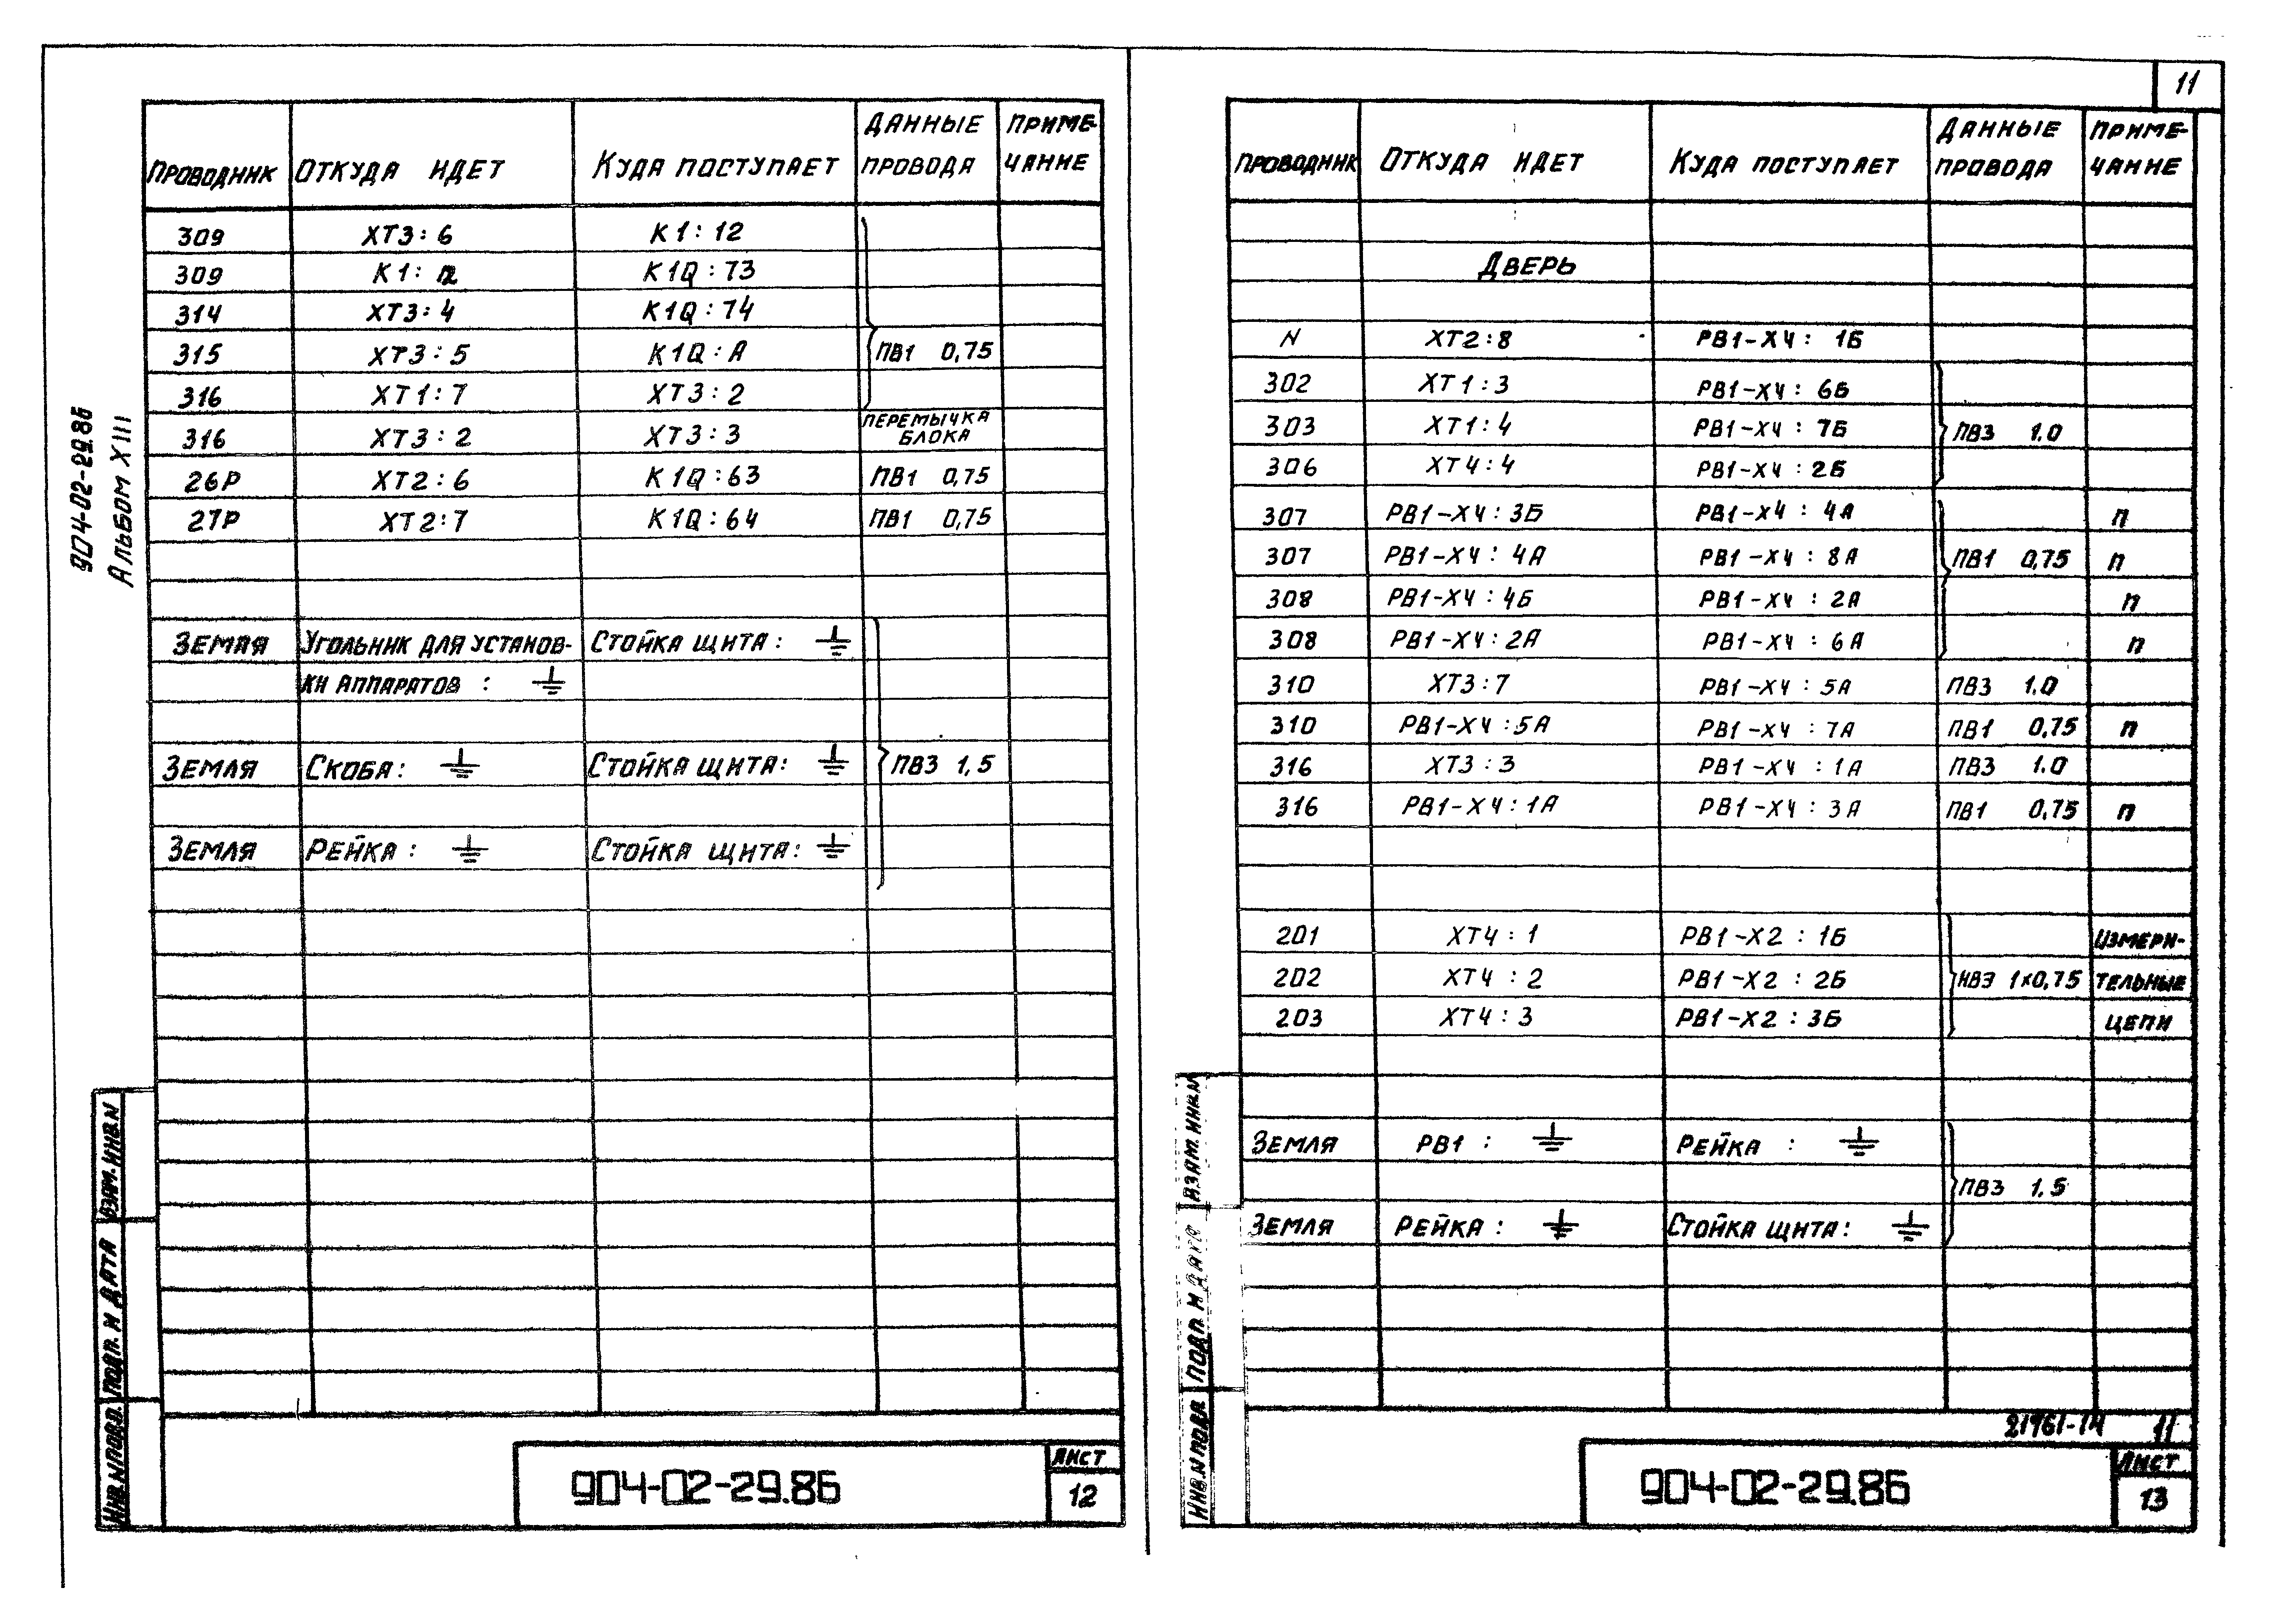 11
904-02-29.86
Альбом XIII
Проводник Откуда идет Куда поступает Данные провода Примечание
309 XT3:6 K1:12
309 K1: K1Q:73
314 XT3:4 K1Q:74
315 XT3:5 K1Q:A ПВ1 0,75
316 XT1:7 XT3:2
316 XT3:2 XT3:3 Перемычка блока
26P XT2:6 K1Q:63 ПВ1 0,75
27P XT2:7 K1Q:64 ПВ1 0,75
Земля Угольник для установ- Стойка щита: ⏚
ки аппаратов: ⏚
Земля Скоба: ⏚ Стойка щита: ⏚ ПВ3 1,5
Земля Рейка: ⏚ Стойка щита: ⏚
Взам. инв. N
Подп. и дата
Инв. N подл.
904-02-29.86
Лист
12
Проводник Откуда идет Куда поступает Данные провода Примечание
Дверь
N XT2:8 PB1-X4: 1Б
302 XT1:3 PB1-X4: 6Б
303 XT1:4 PB1-X4: 7Б ПВ3 1.0
306 XT4:4 PB1-X4: 2Б
307 PB1-X4:3Б PB1-X4: 4А п
307 PB1-X4: 4А PB1-X4: 8А ПВ1 0,75 п
308 PB1-X4: 4Б PB1-X4: 2А п
308 PB1-X4: 2А PB1-X4: 6А п
310 XT3:7 PB1-X4: 5А ПВ3 1.0
310 PB1-X4:5А PB1-X4: 7А ПВ1 0,75 п
316 XT3:3 PB1-X4: 1А ПВ3 1.0
316 PB1-X4:1А PB1-X4: 3А ПВ1 0,75 п
201 XT4:1 PB1-X2: 1Б Измери-
202 XT4:2 PB1-X2: 2Б НВЭ 1×0,75 тельные
203 XT4:3 PB1-X2: 3Б цепи
Земля PB1: ⏚ Рейка: ⏚
ПВ3 1,5
Земля Рейка: ⏚ Стойка щита: ⏚
Взам. инв. N
Подп. и дата
Инв. N подл
21961-14 11
904-02-29.86
Лист
13